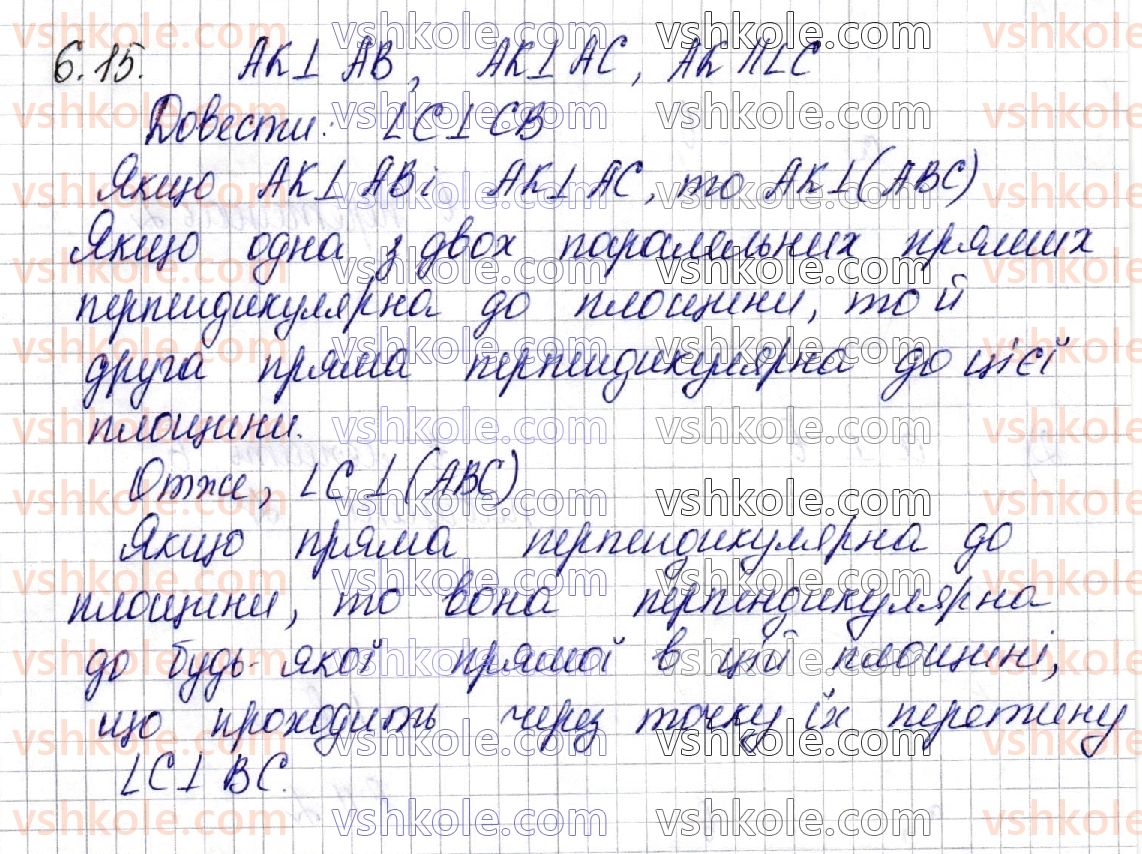 6.15. AK⊥AB, AK⊥AC, AK∥LC
Довести: LC⊥CB
Якщо AK⊥AB і AK⊥AC, то AK⊥(ABC)
Якщо одна з двох паралельних прямих
перпендикулярна до площини, то й
друга пряма перпендикулярна до цієї
площини.
Отже, LC⊥(ABC)
Якщо пряма перпендикулярна до
площини, то вона перпендикулярна
до будь-якої прямої в цій площині,
що проходить через точку їх перетину
LC⊥BC.
vshkole.com